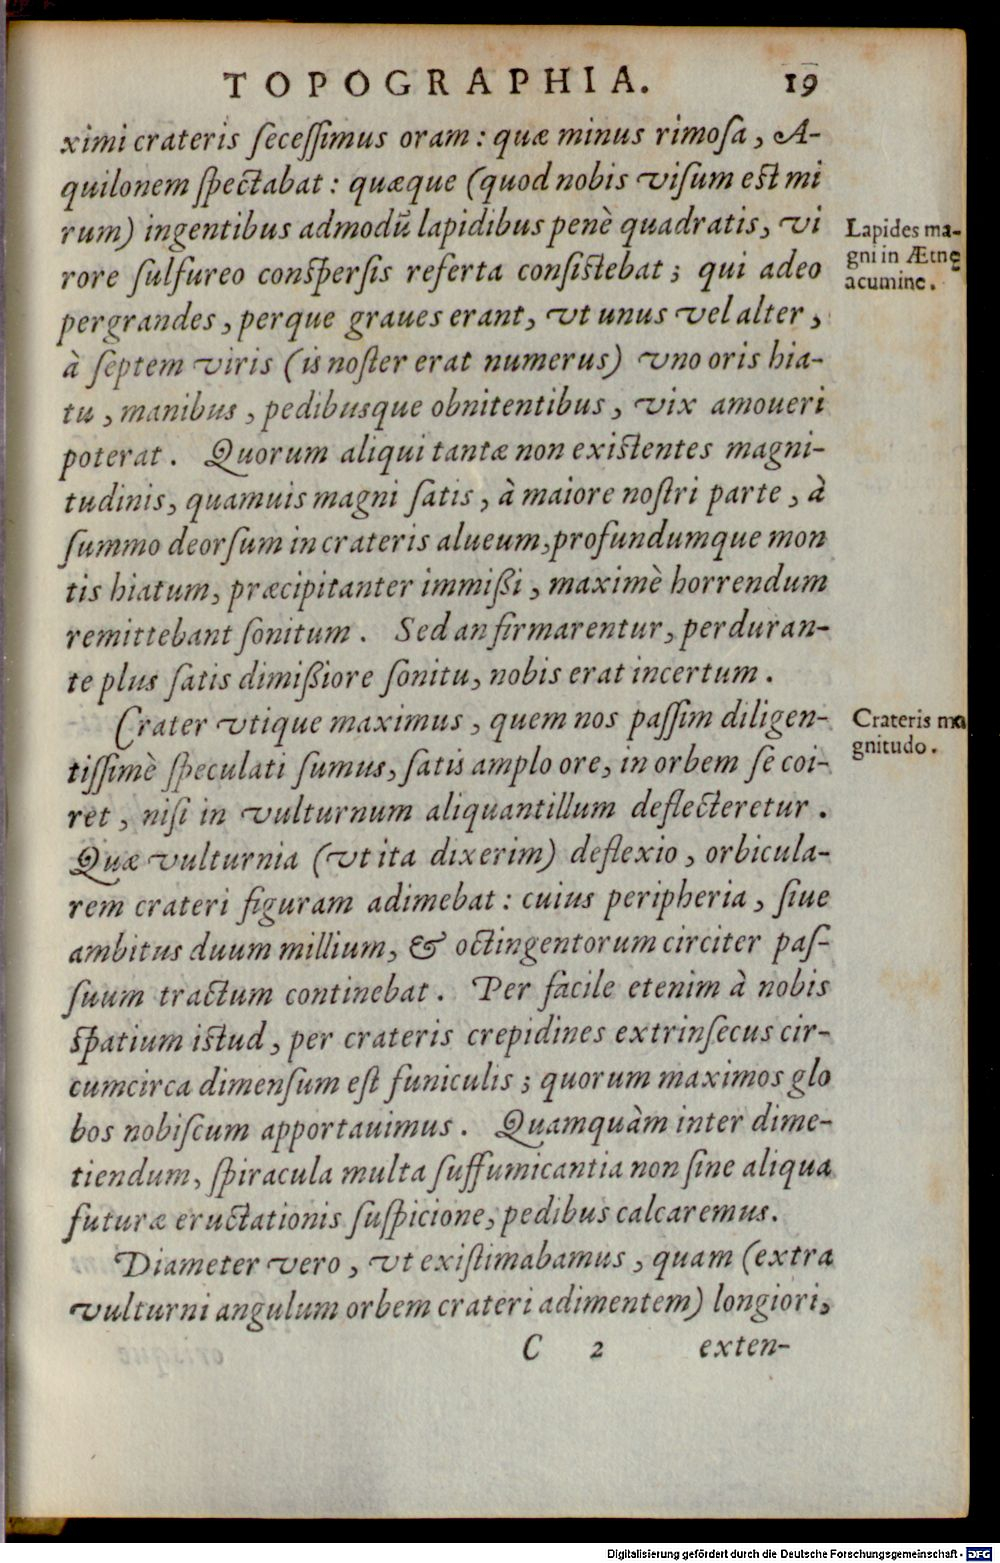 TOPOGRAPHIA. 19
ximi crateris ſeceſſimus oram: quæ minus rimoſa, A-
quilonem ſpectabat: quæque (quod nobis viſum est mi
rum) ingentibus admodū lapidibus penè quadratis, vi
rore ſulfureo conſperſis referta conſistebat; qui adeo
pergrandes, perque graues erant, vt unus vel alter,
à ſeptem viris (is noſter erat numerus) vno oris hia-
tu, manibus, pedibusque obnitentibus, vix amoueri
poterat. Quorum aliqui tantæ non existentes magni-
tudinis, quamuis magni ſatis, à maiore noſtri parte, à
ſummo deorſum in crateris alueum, profundumque mon
tis hiatum, præcipitanter immißi, maximè horrendum
remittebant ſonitum. Sed an firmarentur, perduran-
te plus ſatis dimißiore ſonitu, nobis erat incertum.
Lapides ma-
gni in Ætnę
acumine.
Crater vtique maximus, quem nos paſſim diligen-
tiſſimè ſpeculati ſumus, ſatis amplo ore, in orbem ſe coi-
ret, niſi in vulturnum aliquantillum deflecteretur.
Quæ vulturnia (vt ita dixerim) deflexio, orbicula-
rem crateri figuram adimebat: cuius peripheria, ſiue
ambitus duum millium, & octingentorum circiter paſ-
ſuum tractum continebat. Per facile etenim à nobis
ſpatium istud, per crateris crepidines extrinſecus cir-
cumcirca dimenſum eſt funiculis; quorum maximos glo
bos nobiſcum apportauimus. Quamquàm inter dime-
tiendum, ſpiracula multa ſuffumicantia non ſine aliqua
futuræ eructationis ſuſpicione, pedibus calcaremus.
Crateris ma
gnitudo.
Diameter vero, vt exiſtimabamus, quam (extra
vulturni angulum orbem crateri adimentem) longiori,
C 2 exten-
Digitalisierung gefördert durch die Deutsche Forschungsgemeinschaft - DFG